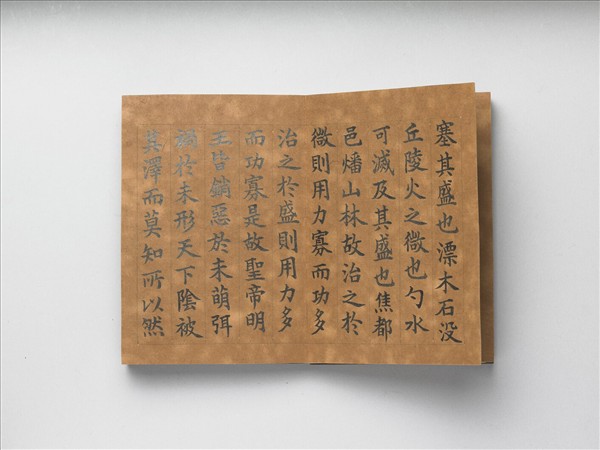 塞其盛也漂木石没
丘陵火之微也勺水
可滅及其盛也焦都
邑燔山林故治之於
微則用力寡而功多
治之於盛則用力多
而功寡是故聖帝明
王皆銷惡於未萌弭
禍於未形天下陰被
其澤而莫知所以然